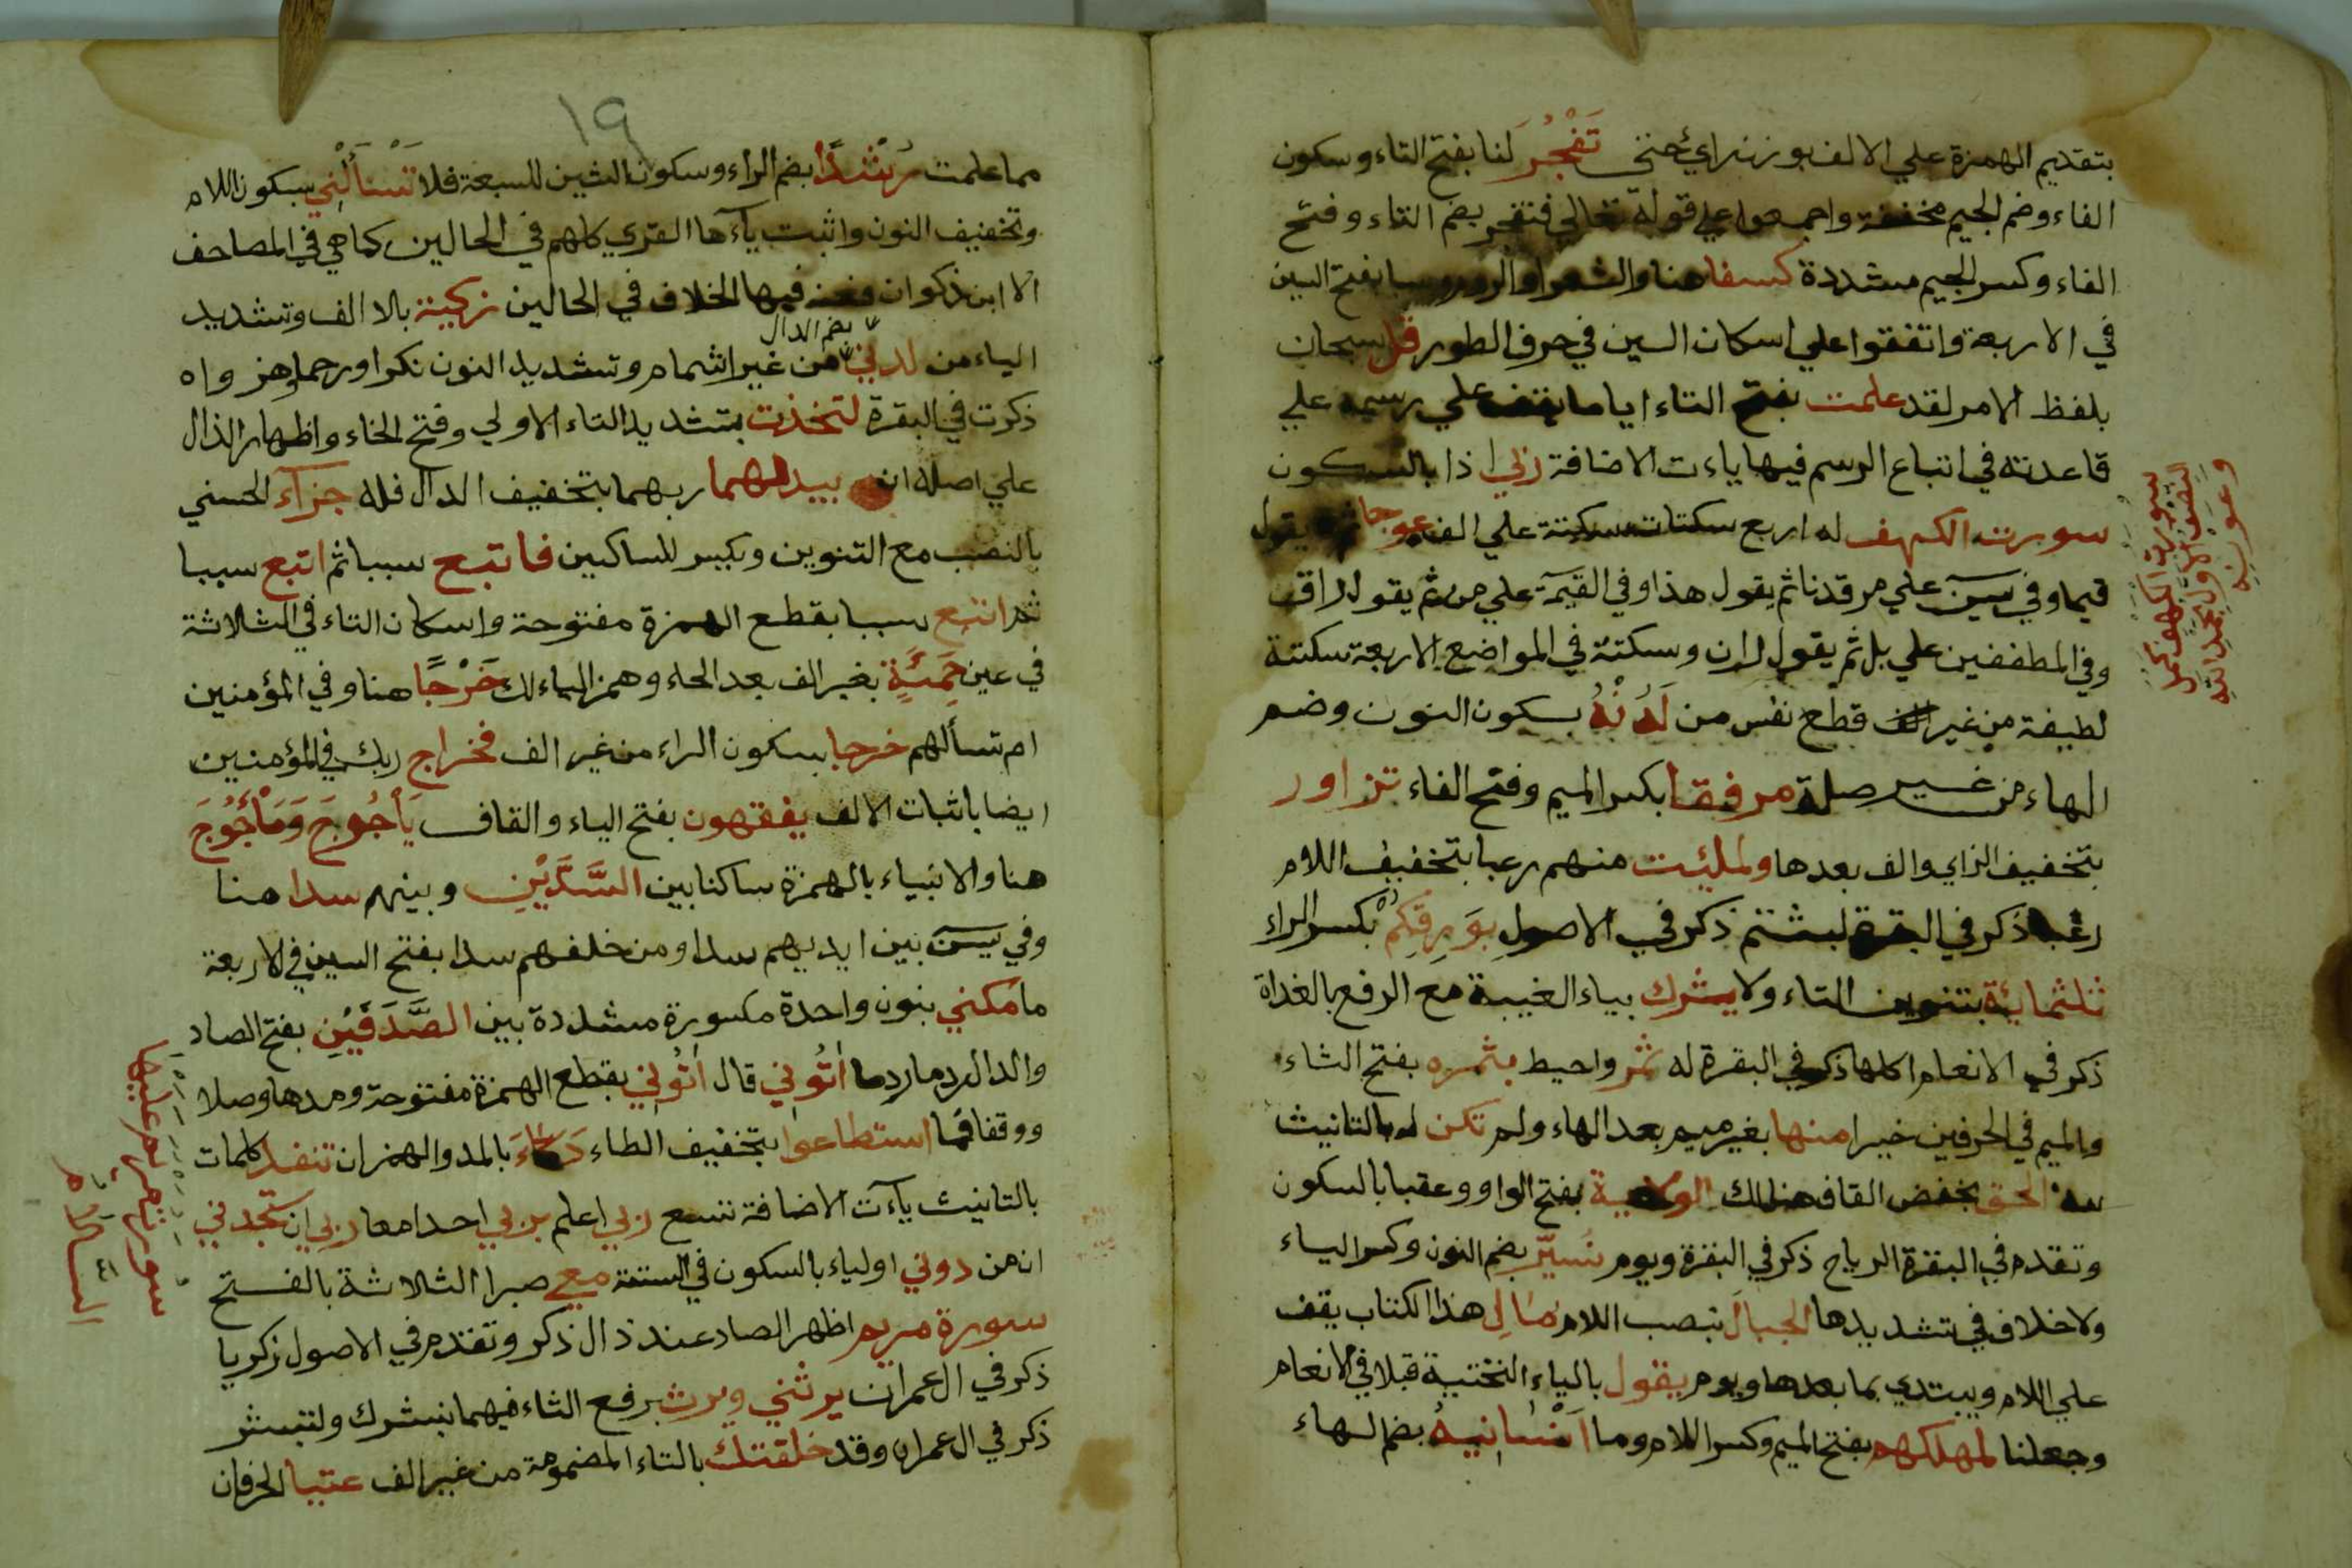 بتقديم الهمزة علي الالف بوزن راي حتي تَفْجُرَ لنا بفتح التاء وسكون
الفاء وضم الجيم مخففة واجمعوا علي قوله تعالي فتفجر بضم التاء وفتح
الفاء وكسر الجيم مشددة كسفا هنا والشعرا والروم وسبا بفتح السين
في الاربعة واتفقوا علي اسكان السين في حرف الطور قل سبحان
بلفظ الامر لقد علمت بفتح التاء ايا ما يقف علي رسمه علي
قاعدته في اتباع الرسم فيها ياءت الاضافة ربي اذا بالسكون
سورت الكهف له اربع سكتات سكتة علي الف عوجا ثم يقول
قيما وفي يسن علي مرقدنا ثم يقول هذا وفي القيمة علي من ثم يقول راق
وفي المطففين علي بل ثم يقول ران وسكتة في المواضع الاربعة سكتة
لطيفة من غير قطع نفس من لَدُنْهُ بسكون النون وضم
الهاء من غير صلة مرفقا بكسر الميم وفتح الفاء تزاور
بتخفيف الزاي والف بعدها ولملئت منهم رعبا بتخفيف اللام
رعبا ذكر في البقرة لبثتم ذكر في الاصول بوَرِقِكُمْ بكسر الراء
ثلثمائة بتنوين التاء ولا يشرك بياء الغيبة مع الرفع بالغداة
ذكر في الانعام اكلها ذكر في البقرة له ثمر واحيط بثمره بفتح الثاء
والميم في الحرفين خيرا منها بغير ميم بعد الهاء ولم تكن له بالتانيث
لله الحق بخفض القاف هنالك الولاية بفتح الواو وعقبا بالسكون
وتقدم في البقرة الرياح ذكر في البقرة ويوم نُسَيِّر بضم النون وكسر الياء
ولا خلاف في تشديدها الجبالَ بنصب اللام مال هذا الكتاب يقف
علي اللام ويبتدي بما بعدها ويوم يقول بالياء التحتية قبلا في الانعام
وجعلنا لمهلكهم بفتح الميم وكسر اللام وما اَنْسانيهُ بضم الهاء
سورت الكهف
النصف الاول بحمد الله
وعونه
١٩
مما علمت رُشْدًا بضم الراء وسكون الشين للسبعة فلا تَسْأَلْنِي بسكون اللام
وتخفيف النون واثبت يآءها القري كلهم في الحالين كما هي في المصاحف
الا ابن ذكوان فعنه فيها الخلاف في الحالين زكية بالا الف وتشديد
بضم الدال
الياء من لدني من غير اشمام وتشديد النون نكرا ورحما وهزواه
ذكرت في البقرة لتخذت بتشديد التاء الاولي وفتح الخاء واظهار الذال
علي اصله ان يبدلهما ربهما بتخفيف الدال فله جزآء الحسني
بالنصب مع التنوين وبكسر للساكنين فاتبع سببا ثم اتبع سببا
ثم اتبع سببا بقطع الهمزة مفتوحة واسكان التاء في الثلاثة
في عين حَمِئَةٍ بغير الف بعد الحاء وهمز الياء لك خَرْجًا هنا وفي المؤمنين
ام تسألهم خرجا بسكون الراء من غير الف فخراج ربك في المؤمنين
ايضا باثبات الالف يفقهون بفتح الياء والقاف يَأْجُوجَ وَمَأْجُوجَ
هنا والانبياء بالهمزة ساكنا بين السَّدَّيْنِ وبينهم سدا هنا
وفي يسن بين ايديهم سدا ومن خلفهم سدا بفتح السين في الاربعة
ما مكني بنون واحدة مكسورة مشددة بين الصَّدَفَيْنِ بفتح الصاد
والدال ردما ردما اتُوني قال اتُوني بقطع الهمزة مفتوحة ومدها وصلا
ووقفا فما استطاعوا بتخفيف الطاء دَكَّاءَ بالمد والهمز ان تنفد كلمات
بالتانيث يآءت الاضافة تسع ربي اعلم بربي احدا معا ربي ان ستجدني
ان من دوني اولياء بالسكون في الستة معي صبرا الثلاثة بالفتح
سورة مريم اظهر الصاد عند ذال ذكر وتقدم في الاصول زكريا
ذكر في ال عمران يرثني ويرث برفع الثاء فيهما نبشرك ولتبشر
ذكر في ال عمران وقد خلقتك بالتاء المضمومة من غير الف عتيا الحرفان
سورت مريم عليها
السلام